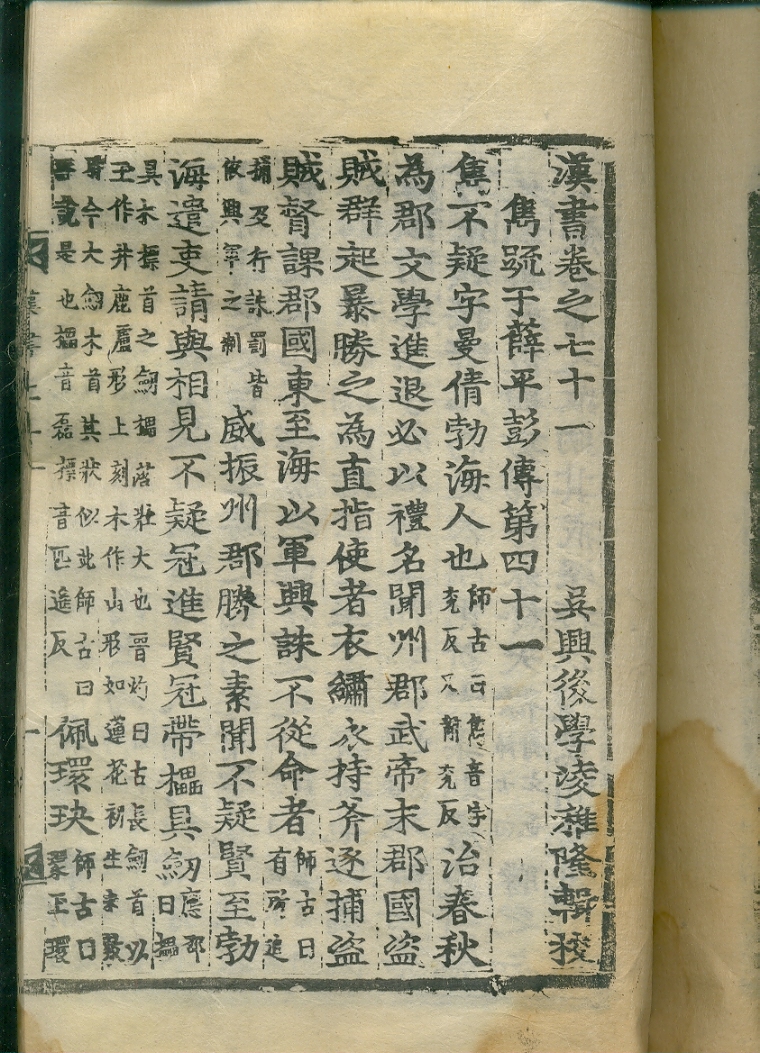 漢書卷之七十一　吳興後學凌稚隆輯挍
雋疏于薛平彭傳第四十一
雋不疑字曼倩勃海人也師古曰雋音字兖反又辭兖反治春秋
為郡文學進退必以禮名聞州郡武帝末郡國盗
賊群起暴勝之為直指使者衣繡衣持斧逐捕盗
賊督課郡國東至海以軍興誅不從命者師古曰有所追
捕及行誅罰皆依興軍之制威振州郡勝之素聞不疑賢至勃
海遣吏請與相見不疑冠進賢冠帶櫑具劒應邵曰櫑
具木摽首之劒櫑落壯大也晋灼曰古長劒首以
玉作井鹿盧形上刻木作山形如蓮花初生未敷
時今大劒木首其狀似此師古曰
晋說是也櫑音磊摽音匹遙反佩環玦師古曰環玉環